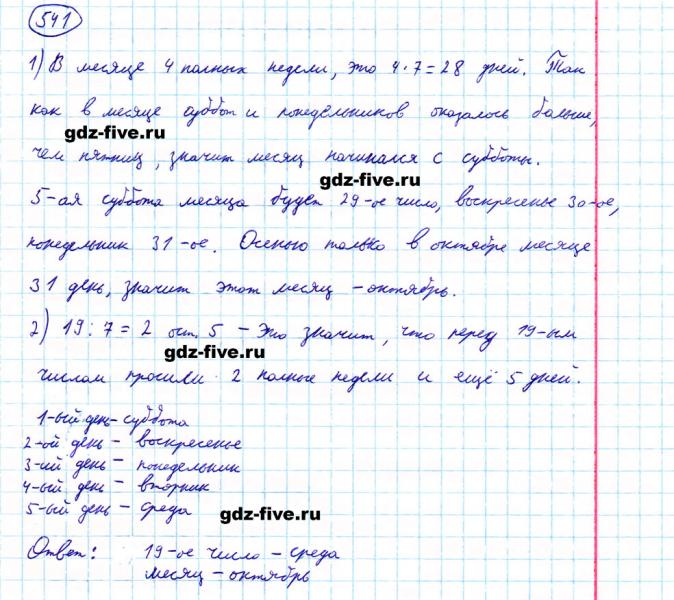 541
1) В месяце 4 полных недели, это 4·7=28 дней. Так
как в месяце суббот и понедельников оказалось больше,
gdz-five.ru
чем пятниц, значит месяц начинался с субботы.
gdz-five.ru
5-ая суббота месяца будет 29-ое число, воскресенье 30-ое,
понедельник 31-ое. Осенью только в октябре месяце
31 день, значит этот месяц - октябрь.
2) 19:7=2 ост. 5 - Это значит, что перед 19-ым
gdz-five.ru
числом прошли 2 полные недели и ещё 5 дней.
1-ый день - суббота
2-ой день - воскресенье
3-ий день - понедельник
4-ый день - вторник
5-ый день - среда
gdz-five.ru
Ответ: 19-ое число - среда
месяц - октябрь